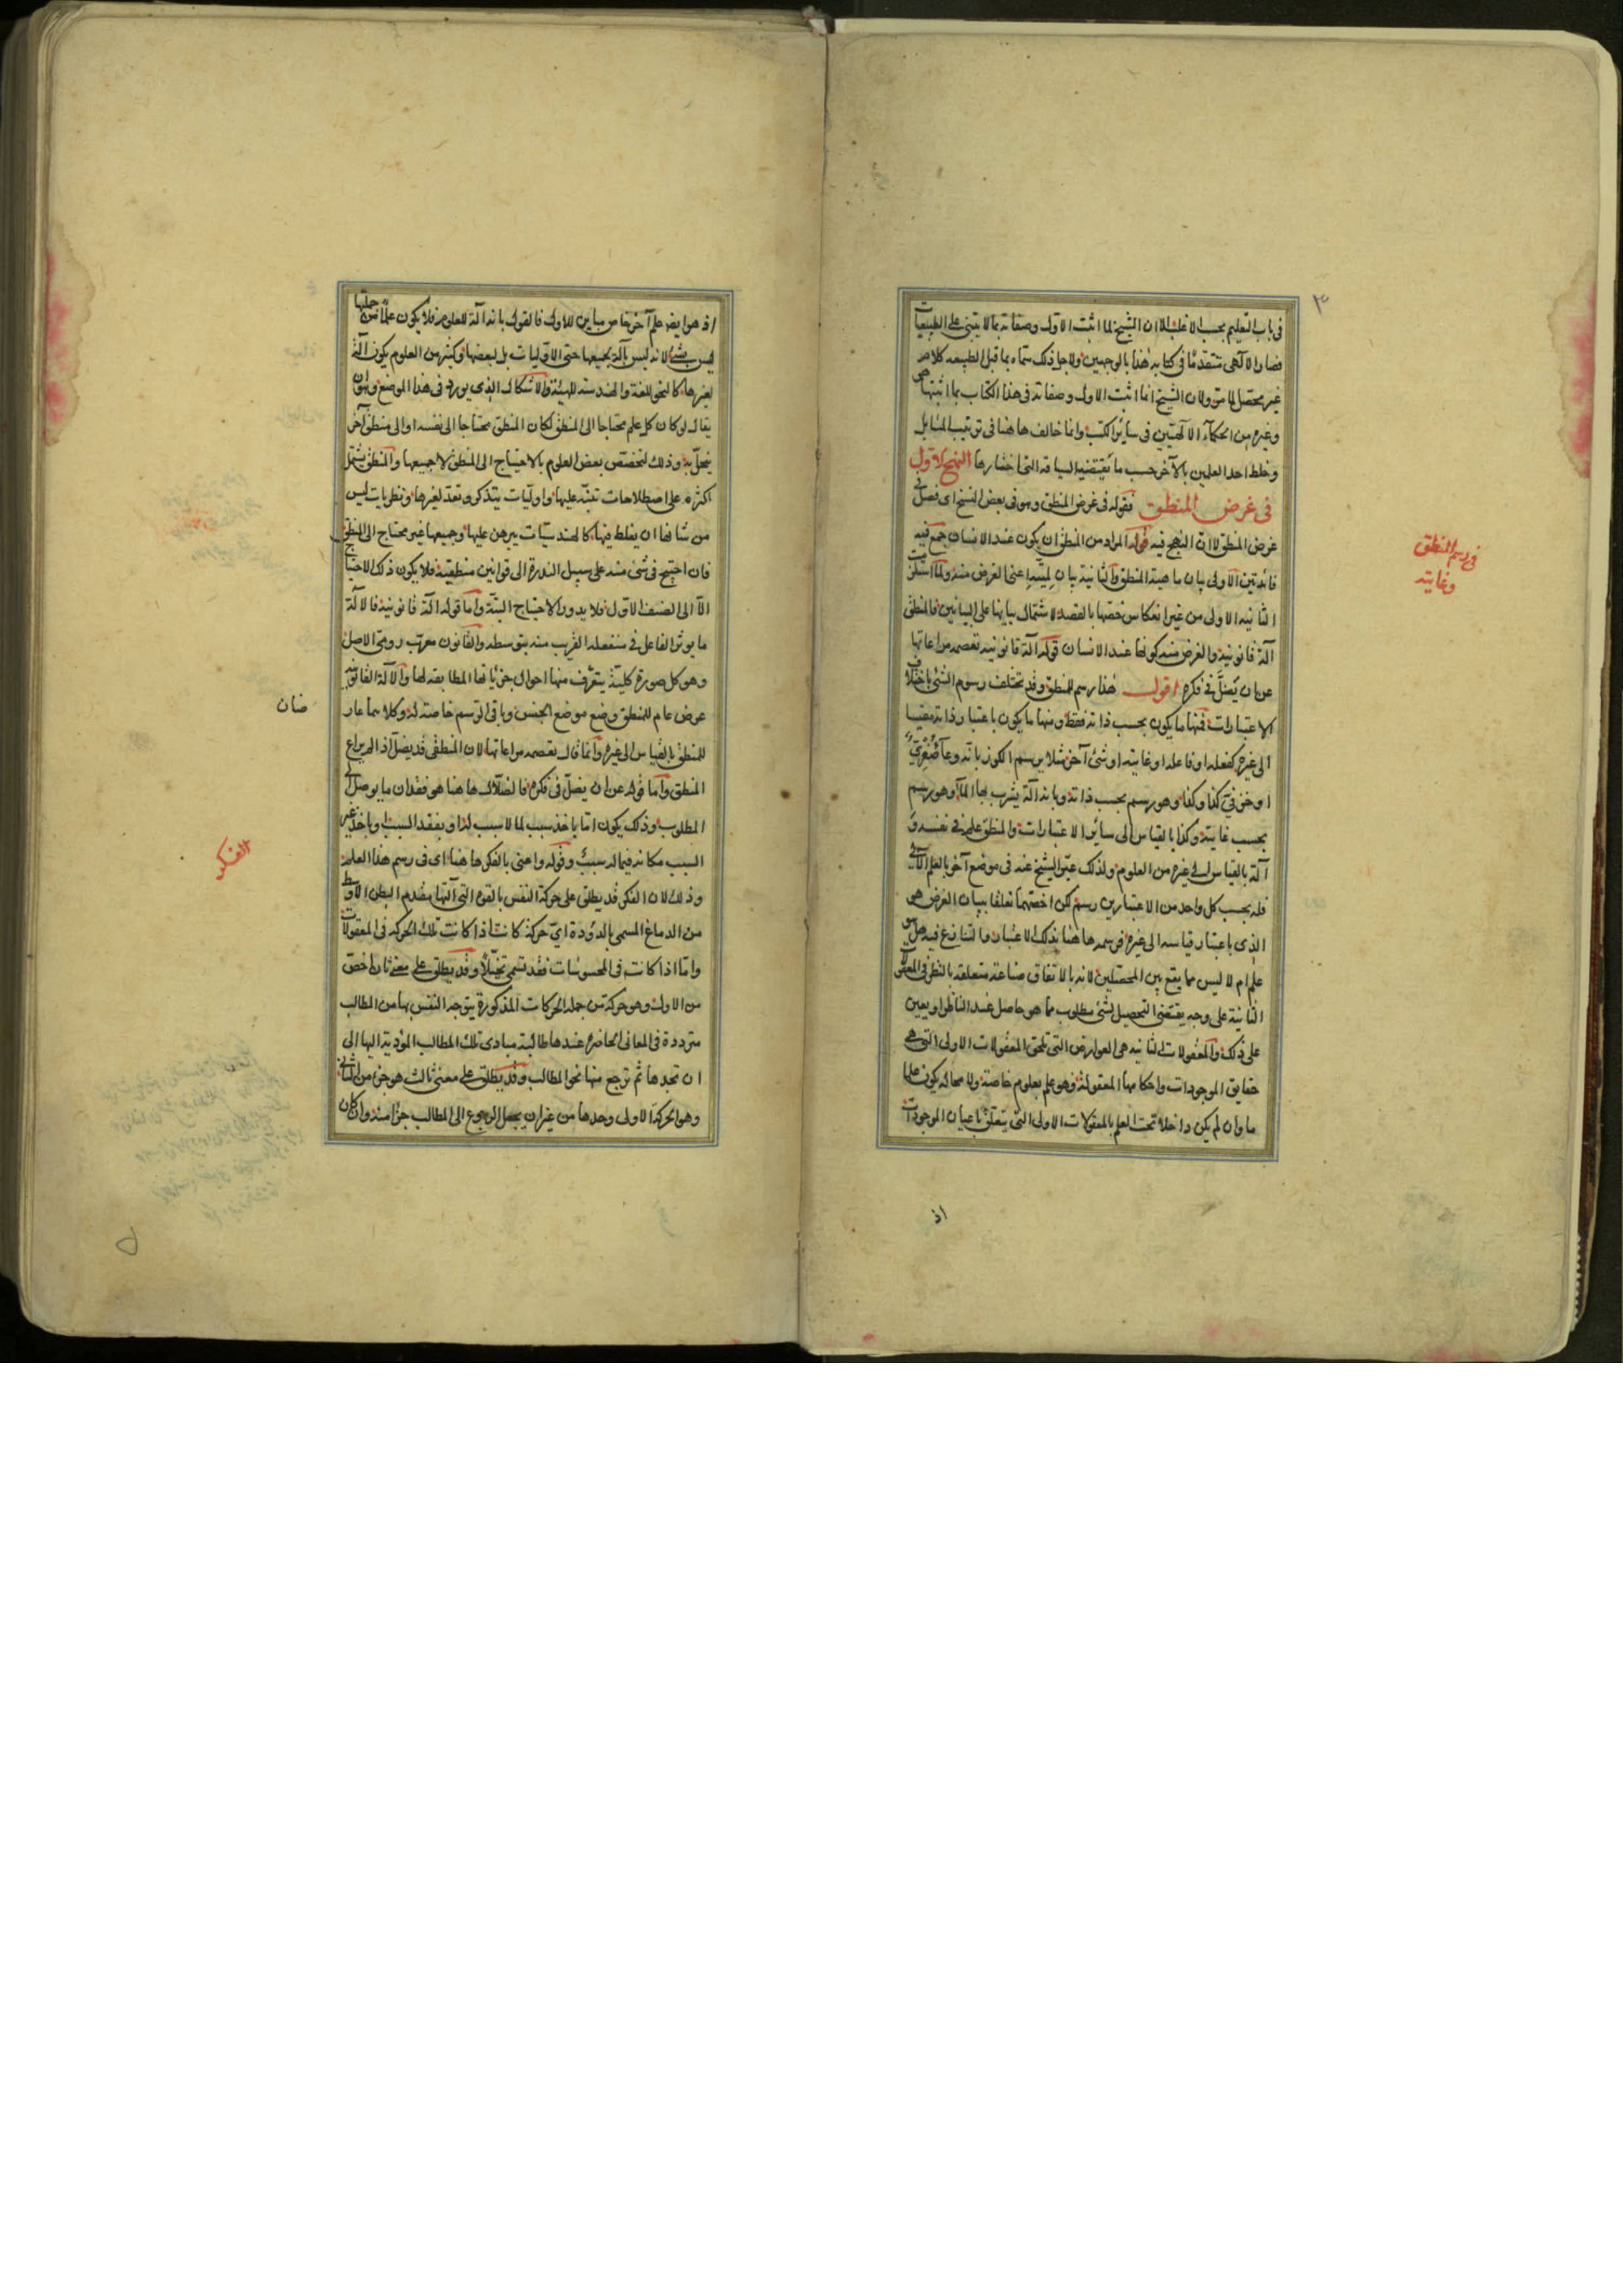 ٣
في باب التعليم بحسب الاغلب الا ان الشيخ لما اثبت الاول وصفاته بما لا يبتنى على الطبيعيات
فصار الالهى متقدما في كتابه هذا بالوجهين ولاجل ذلك سماه بما قبل الطبيعه كلام
غير محصل لما مر ولان الشيخ انما اثبت الاول وصفاته في هذا الكتاب بما اثبتها هو
وغيره من الحكماء الالهيين في ساير الكتب وانما خالف هاهنا في ترتيب المسايل
وخلط احد العلمين بالاخر حسب ما يقتضيه السياقة التي اختارها النهج الاول
في غرض المنطق فقوله في غرض المنطق وهو في بعض النسخ اى فصل في
غرض المنطق لان النهج فيه قوله المراد من المنطق ان يكون عند الانسان جمع فيه
فائدتين الاولى بيان ماهية المنطق والثانية بيان لميته اعنى الغرض منه ولما استلزمت
الثانيه الاولى من غير انعكاس خصها بالقصد لاشتمال بيانها على البيانين فالمنطق
آلة قانونية والغرض منه كونها عند الانسان قوله آلة قانونيه تعصمه مراعاتها
عن ان يضل في فكره اقول هذا رسم للمنطق وقد تختلف رسوم الشئ باختلاف
الاعتبارات فمنها ما يكون بحسب ذاته فقط ومنها ما يكون باعتبار ذاته مقيسا
الى غيره كفعله او فاعله او غايته او شئ آخر مثلا يرسم الكوز بانه وعاء صفرى
او خزفى كذا وكذا وهو رسم بحسب ذاته وبانه آلة يشرب بها الماء وهو رسم
بحسب غايته وكذا بالقياس الى سائر الاعتبارات والمنطق علم في نفسه و
آلة بالقياس الى غيره من العلوم ولذلك عبر الشيخ عنه في موضع آخر بالعلم الآلى
فله بحسب كل واحد من الاعتبارين رسم لكن اخصهما تعلقا ببيان الغرض هو
الذى باعتبار قياسه الى غيره فرسمه هاهنا بذلك الاعتبار والتنازع فيه هل هو
علم ام لا ليس مما يقع بين المحصلين لانه بالاتفاق صناعة متعلقه بالنظر في المعقولات
الثانية على وجه يقتضى التحصيل لشئ مطلوب مما هو حاصل عند الناظر او يعين
على ذلك والمعقولات الثانيه هى العوارض التى تلحق المعقولات الاولى التى هى
حقايق الموجودات واحكامها المعقولة فهو علم بعلوم خاصة ولا محاله يكون علما
ما وان لم يكن داخلا تحت العلم بالمعقولات الاولى التى يتعلق باعيان الموجودات
اذ
في رسم المنطق
وغايته
اذ هو ايضا علم آخر خاص مباين للاول فالقول بانه آلة للعلوم فلا يكون علما من جملتها
ليس بشئ لانه ليس بآلة لجميعها حتى الاوليات بل لبعضها وكثير من العلوم يكون آلة
لغيرها كالنحو للغة والهندسه للهيئة والاشكال الذى يورد في هذا الموضع وهو ان
يقال لو كان كل علم محتاجا الى المنطق لكان المنطق محتاجا الى نفسه او الى منطق آخر
ينحل به وذلك لتخصص بعض العلوم بالاحتياج الى المنطق لا جميعها والمنطق يشتمل
اكثره على اصطلاحات تنبه عليها واوليات يتذكر وتعد لغيرها ونظريات ليس
من شانها ان يغلط فيها كالهندسيات يبرهن عليها وجميعها غير محتاج الى المنطق
فان احتيج في شئ منه على سبيل الندرة الى قوانين منطقية فلا يكون ذلك الاحتياج
الا الى الصنف الاول فلا يدور الاحتياج البتة واما قوله آلة قانونية فالآلة
ما يوثر الفاعل في منفعله القريب منه بتوسطه والقانون معرب رومى الاصل
وهو كل صورة كلية يتعرف منها احوال جزئياتها المطابقه لها والآلة القانونية
عرض عام للمنطق وضع موضع الجنس وباقى الرسم خاصة له وكلاهما عارضان
للمنطق بالقياس الى غيره وانما قال تعصمه مراعاتها لان المنطقى قد يضل اذا لم يراع
المنطق واما قوله عن ان يضل في فكره فالضلال هاهنا هو فقدان ما يوصل الى
المطلوب وذلك يكون اما باخذ سبب لما لا سبب له او بفقد السبب او باخذ غير
السبب مكانه فيما له سبب وقوله واعنى بالفكر هاهنا اى في رسم هذا العلم
وذلك لان الفكر قد يطلق على حركة النفس بالقوة التى آلتها مقدم البطن الاوسط
من الدماغ المسمى بالدودة اى حركة كانت اذا كانت تلك الحركة في المعقولات
واما اذا كانت في المحسوسات فقد تسمى تخيلا وقد يطلق على معنى ثان اخص
من الاول وهو حركة من جمله الحركات المذكورة يتوجه النفس بها من المطالب
مترددة في المعانى الحاضرة عندها طالبة مبادى تلك المطالب المؤدية اليها الى
ان تجدها ثم ترجع منها نحو المطالب وقد يطلق على معنى ثالث هو جزء من الثانى
وهو الحركة الاولى وحدها من غير ان يجعل الرجوع الى المطالب جزأ منه وان كان
ضان
الفكر